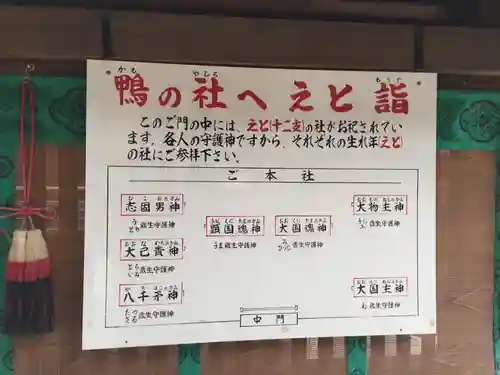 鴨の社へえと詣
かも やしろ もうで
このご門の中には、えと(十二支)の社がお祀されてい
ます。各人の守護神ですから、それぞれの生れ年(えと)
の社にご参拝下さい。
ご本社
志固男神
うとり歳生守護神
大己貴神
とらいぬ歳生守護神
八千矛神
たつさる歳生守護神
顕国魂神
うま歳生守護神
大国魂神
歳生守護神
大物主神
歳生守護神
大国主神
歳生守護神
中門